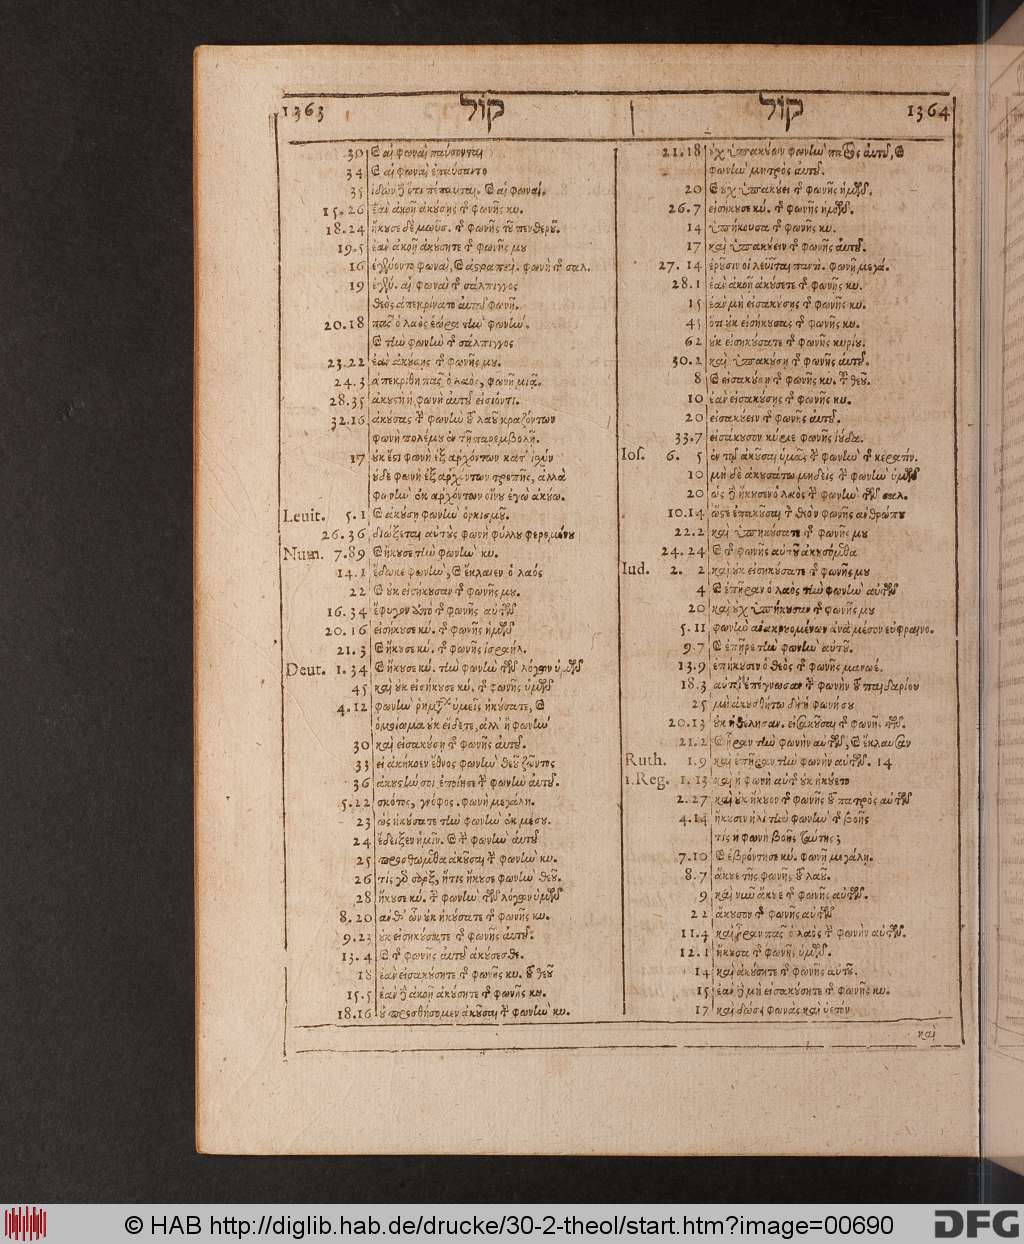 1363 קוֹל קוֹל 1364
30 καὶ αἱ φωναὶ παύσονται
34 καὶ αἱ φωναὶ ἐπαύσαντο
35 ἰδὼν ὅτι πέπαυται. καὶ αἱ φωναὶ.
15.26 ἐὰν ἀκοῇ ἀκούσῃς τῆς φωνῆς κυ.
18.24 ἤκουσε δὲ μωϋσ. τῆς φωνῆς τοῦ πενθεροῦ.
19.5 ἐὰν ἀκοῇ ἀκούσητε τῆς φωνῆς μου
16 ἐγένοντο φωναὶ, καὶ ἀστραπαὶ. φωνὴ τῆς σαλ.
19 ἐγέν. αἱ φωναὶ τῆς σάλπιγγος
θεὸς ἀπεκρίνατο αὐτῷ φωνῇ.
20.18 πᾶς ὁ λαὸς ἑώρα τὴν φωνὴν.
καὶ τὴν φωνὴν τῆς σάλπιγγος
23.22 ἐὰν ἀκούσῃς τῆς φωνῆς μου.
24.3 ἀπεκρίθη πᾶς ὁ λαὸς, φωνῇ μιᾷ.
28.35 ἀκουστὴ ἡ φωνὴ αὐτοῦ εἰσιόντι.
32.16 ἀκούσας τὴν φωνὴν τοῦ λαοῦ κραζόντων
φωνὴ πολέμου ἐν τῇ παρεμβολῇ.
17 οὐκ ἔστι φωνὴ ἐξαρχόντων κατ' ἰσχὺν
οὐδὲ φωνὴ ἐξαρχόντων τροπῆς, ἀλλὰ
φωνὴν ἐξαρχόντων οἴνου ἐγὼ ἀκούω.
Leuit. 5.1 καὶ ἀκούσῃ φωνὴν ὁρκισμοῦ.
26.36 διώξεται αὐτοὺς φωνὴ φύλλου φερομένου
Num. 7.89 καὶ ἤκουσε τὴν φωνὴν κυ.
14.1 ἔδωκε φωνὴν, καὶ ἔκλαιεν ὁ λαός
22 καὶ οὐκ εἰσήκουσαν τῆς φωνῆς μου.
16.34 ἔφυγον ὑπὸ τῆς φωνῆς αὐτῶν
20.16 εἰσήκουσε κύ. τῆς φωνῆς ἡμῶν
21.3 καὶ ἤκουσε κύ. τῆς φωνῆς ἰσραήλ.
Deut. 1.34 καὶ ἤκουσε κύ. τὴν φωνὴν τῶν λόγων ὑμῶν
45 καὶ οὐκ εἰσήκουσε κύ. τῆς φωνῆς ὑμῶν
4.12 φωνὴν ῥημάτων ὑμεῖς ἠκούσατε, καὶ
ὁμοίωμα οὐκ εἴδετε, ἀλλ' ἢ φωνὴν
30 καὶ εἰσακούσῃ τῆς φωνῆς αὐτοῦ.
33 εἰ ἀκήκοεν ἔθνος φωνὴν θεοῦ ζῶντος
36 ἀκουστήν σοι ἐποίησε τὴν φωνὴν αὐτοῦ.
5.22 σκότος, γνόφος. φωνὴ μεγάλη.
23 ὡς ἠκούσατε τὴν φωνὴν ἐκ μέσου.
24 ἔδειξεν ἡμῖν. καὶ τὴν φωνὴν αὐτοῦ
25 προσθώμεθα ἀκοῦσαι τὴν φωνὴν κυ.
26 τίς γὰρ σὰρξ, ἥτις ἤκουσε φωνὴν θεοῦ.
28 ἤκουσε κύ. τὴν φωνὴν τῶν λόγων ὑμῶν
8.20 ἀνθ' ὧν οὐκ ἠκούσατε τῆς φωνῆς κυ.
9.23 οὐκ εἰσηκούσατε τῆς φωνῆς αὐτοῦ.
13.4 καὶ τῆς φωνῆς αὐτοῦ ἀκούσεσθε.
18 ἐὰν εἰσακούσητε τῆς φωνῆς κυ. τοῦ θεοῦ
15.5 ἐὰν δὲ ἀκοῇ ἀκούσητε τῆς φωνῆς κυ.
18.16 οὐ προσθήσομεν ἀκοῦσαι τὴν φωνὴν κυ.
21.18 οὐχ ὑπακούων φωνὴν πατρὸς αὐτοῦ, καὶ
φωνὴν μητρὸς αὐτοῦ.
20 καὶ οὐχ ὑπακούει τῆς φωνῆς ἡμῶν.
26.7 εἰσήκουσε κύ. τῆς φωνῆς ἡμῶν.
14 ὑπήκουσα τῆς φωνῆς κυ.
17 καὶ ὑπακούειν τῆς φωνῆς αὐτοῦ.
27.14 ἐροῦσιν οἱ λευῖται παντὶ. φωνῇ μεγά.
28.1 ἐὰν ἀκοῇ ἀκούσετε τῆς φωνῆς κυ.
15 ἐὰν μὴ εἰσακούσῃς τῆς φωνῆς κυ.
45 ὅτι οὐκ εἰσήκουσας τῆς φωνῆς κυ.
62 οὐκ εἰσηκούσατε τῆς φωνῆς κυρίου.
30.2 καὶ ὑπακούσῃ τῆς φωνῆς αὐτοῦ.
8 καὶ εἰσακούσῃ τῆς φωνῆς κυ. τοῦ θεοῦ.
10 ἐὰν εἰσακούσῃς τῆς φωνῆς κυ.
20 εἰσακούειν τῆς φωνῆς αὐτοῦ.
33.7 εἰσάκουσον κύριε φωνῆς ἰούδα.
Ios. 6.5 ἐν τῷ ἀκοῦσαι ὑμᾶς τὴν φωνὴν τῆς κερατίν.
10 μὴ δὲ ἀκουσάτω μηδεὶς τὴν φωνὴν ὑμῶν
20 ὡς δὲ ἤκουσεν ὁ λαὸς τὴν φωνὴν τῶν σαλ.
10.14 ὥστε ἐπακοῦσαι τὸν θεὸν φωνῆς ἀνθρώπου
22.2 καὶ ὑπηκούσατε τῆς φωνῆς μου
24.24 καὶ τῆς φωνῆς αὐτοῦ ἀκουσόμεθα
Iud. 2.2 καὶ οὐκ εἰσηκούσατε τῆς φωνῆς μου
4 καὶ ἐπῆραν ὁ λαὸς τὴν φωνὴν αὐτῶν
20 καὶ οὐχ ὑπήκουσαν τῆς φωνῆς μου
5.11 φωνὴν ἀνακρουομένων ἀνὰ μέσον εὐφραινο.
9.7 καὶ ἐπῆρε τὴν φωνὴν αὐτοῦ.
13.9 ἐπήκουσεν ὁ θεὸς τῆς φωνῆς μανωέ.
18.3 αὐτοὶ ἐπέγνωσαν τὴν φωνὴν τοῦ παιδαρίου
25 μὴ ἀκουσθήτω δὴ ἡ φωνή σου
20.13 οὐκ ἠθέλησαν. εἰσακοῦσαι τῆς φωνῆς τῶν.
21.2 καὶ ἦραν τὴν φωνὴν αὐτῶν, καὶ ἔκλαυσαν
Ruth. 1.9 καὶ ἐπῆραν τὴν φωνὴν αὐτῶν. 14
1.Reg. 1.13 καὶ ἡ φωνὴ αὐτῆς οὐκ ἠκούετο
2.27 καὶ οὐκ ἤκουον τῆς φωνῆς τοῦ πατρὸς αὐτῶν
4.14 ἤκουσεν ἡλὶ τὴν φωνὴν τῆς βοῆς
τίς ἡ φωνὴ βοῆς ταύτης;
7.10 καὶ ἐβρόντησε κύ. φωνῇ μεγάλῃ.
8.7 ἄκουε τῆς φωνῆς τοῦ λαοῦ.
9 καὶ νῦν ἄκουε τῆς φωνῆς αὐτῶν.
22 ἄκουσον τῆς φωνῆς αὐτῶν
11.4 καὶ ἦραν πᾶς ὁ λαὸς τὴν φωνὴν αὐτῶν.
12.1 ἤκουσα τῆς φωνῆς ὑμῶν.
14 καὶ ἀκούσητε τῆς φωνῆς αὐτοῦ.
15 ἐὰν δὲ μὴ εἰσακούσητε τῆς φωνῆς κυ.
17 καὶ δώσει φωνὰς καὶ ὑετόν
καὶ
© HAB http://diglib.hab.de/drucke/30-2-theol/start.htm?image=00690
DFG